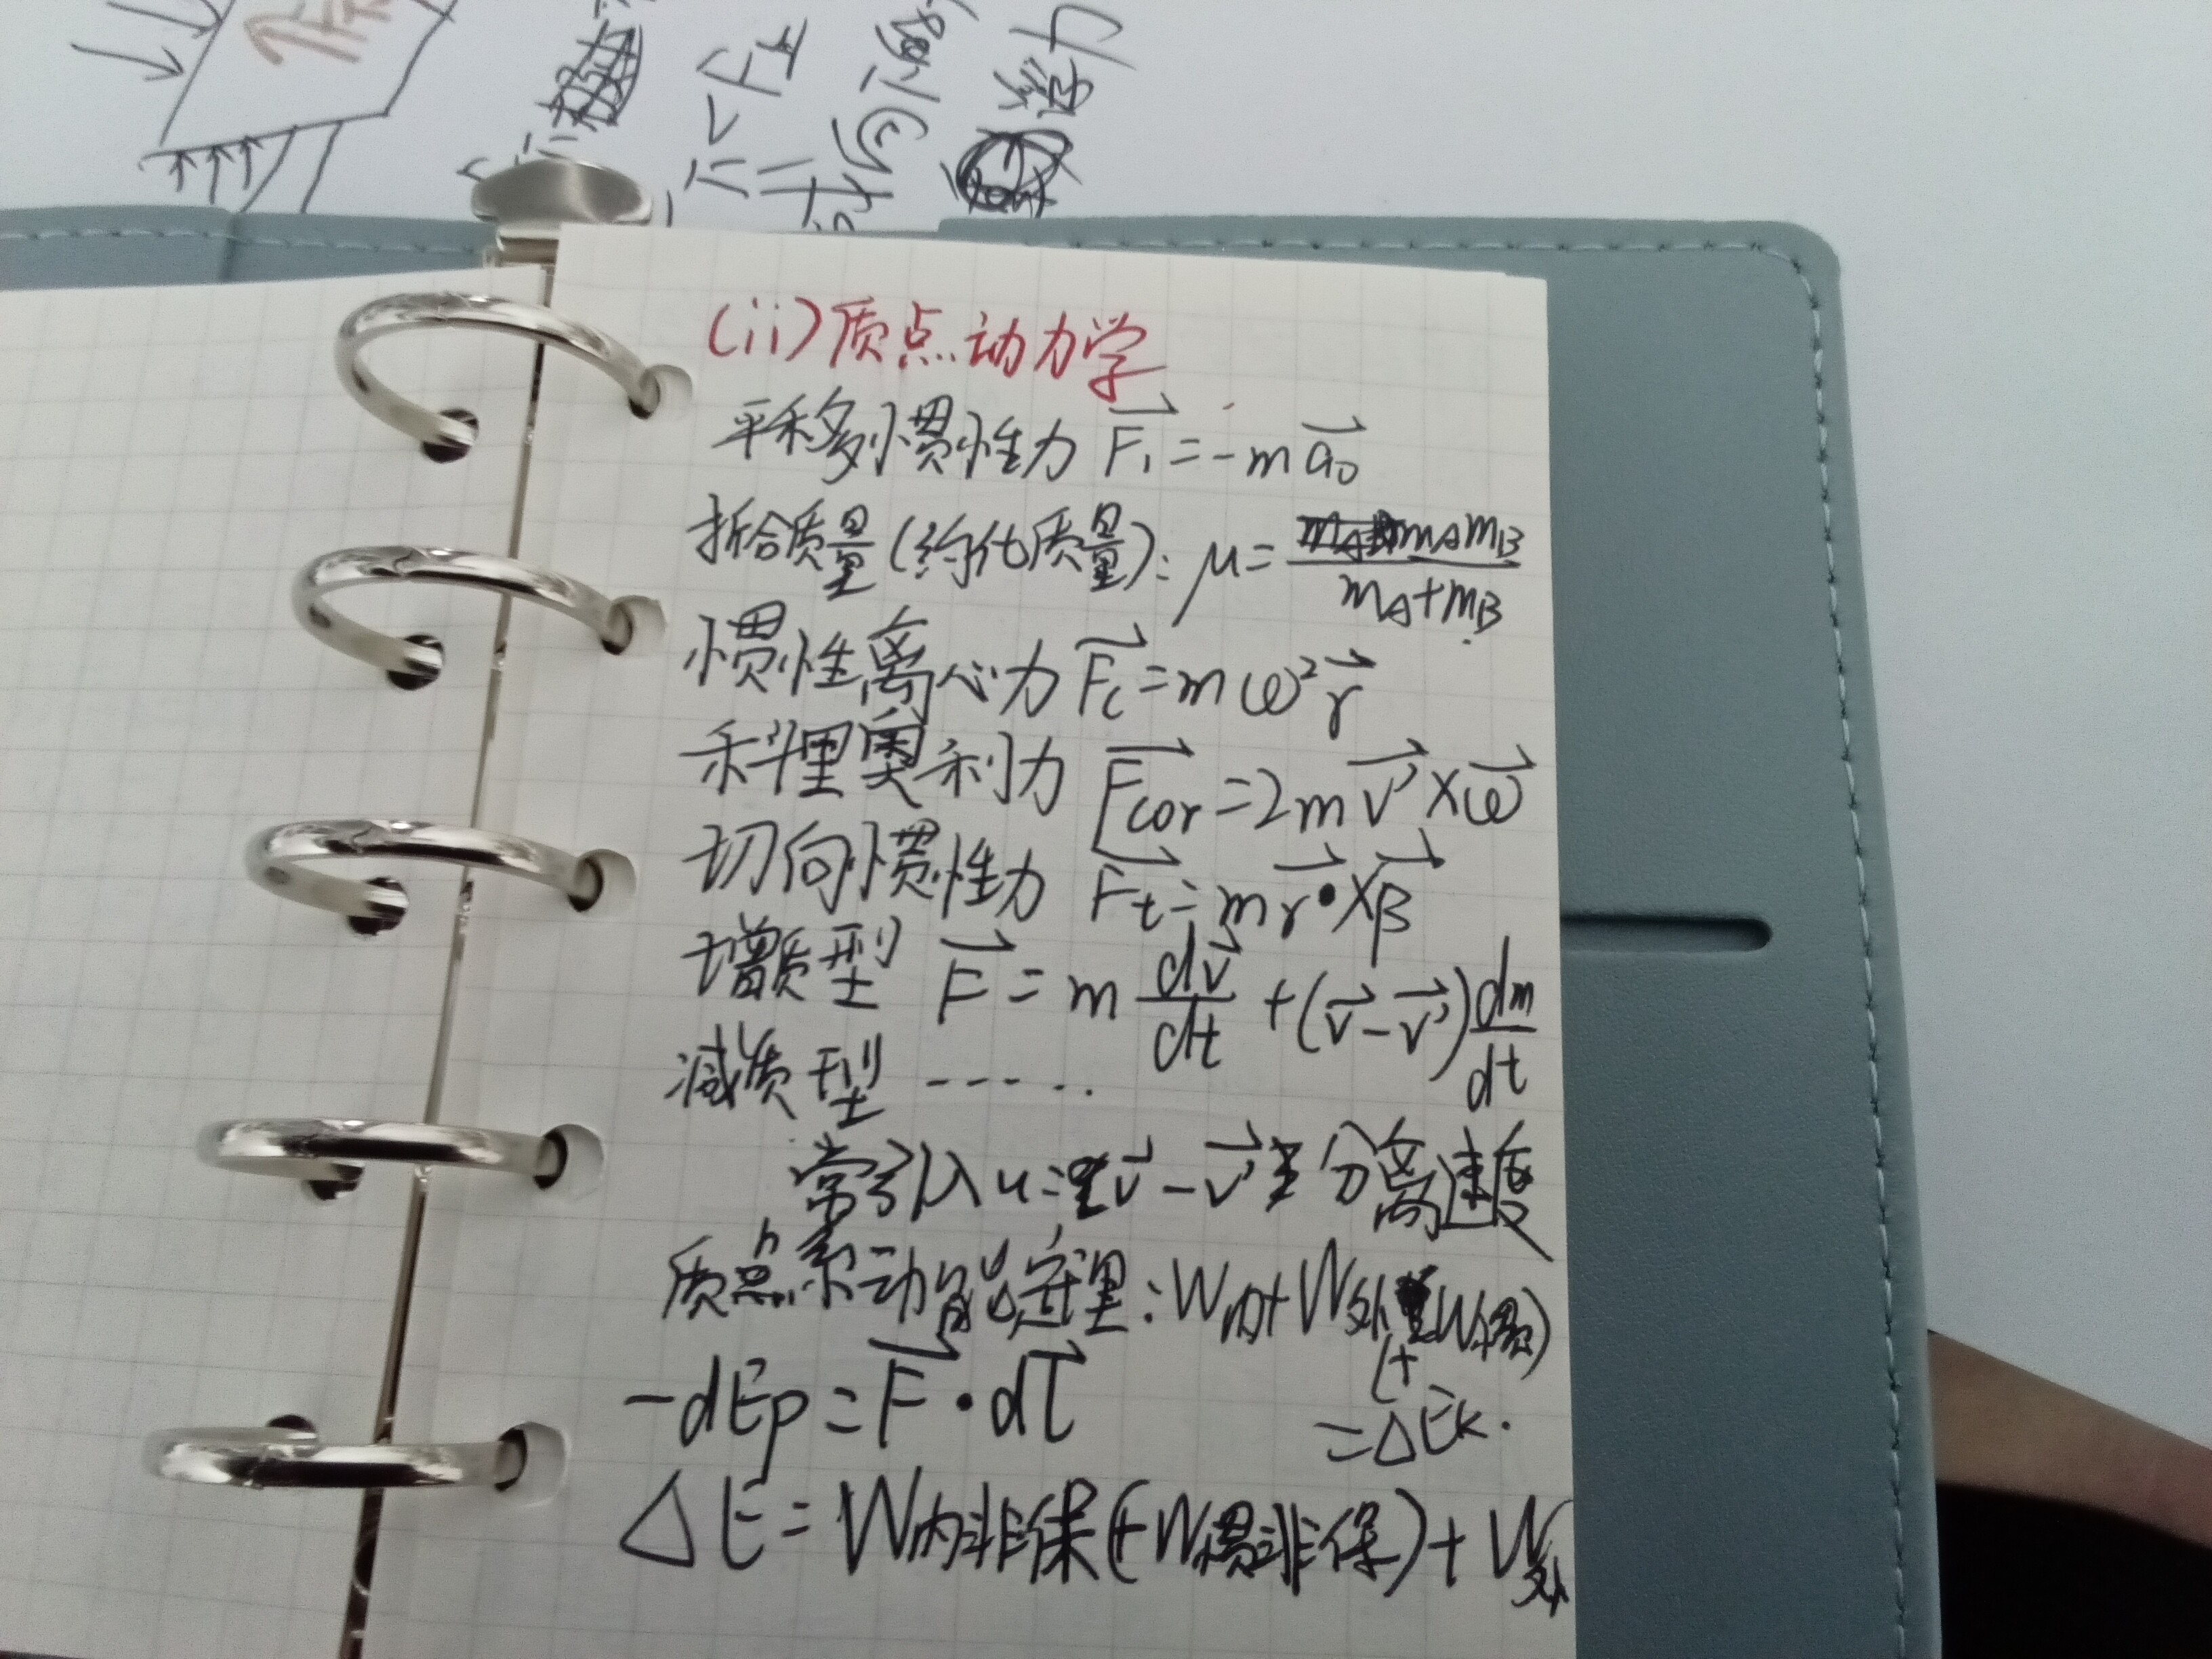 F
力
(ii)质点动力学
平移惯性力 F₁=-ma₀
折合质量(约化质量): μ= mAmB / mA+mB
惯性离心力 Fc=mω²r
科里奥利力 Fcor=2mv'×ω
切向惯性力 Ft=mr×β
增质型 F=m dv/dt +(v-v')dm/dt
减质型 ------
常引入u=v-v' 分离速度
质点系动能定理:W内+W外(+W惯)
=ΔEk.
-dEp=F·dl
ΔE=W内非保(+W惯非保)+W外